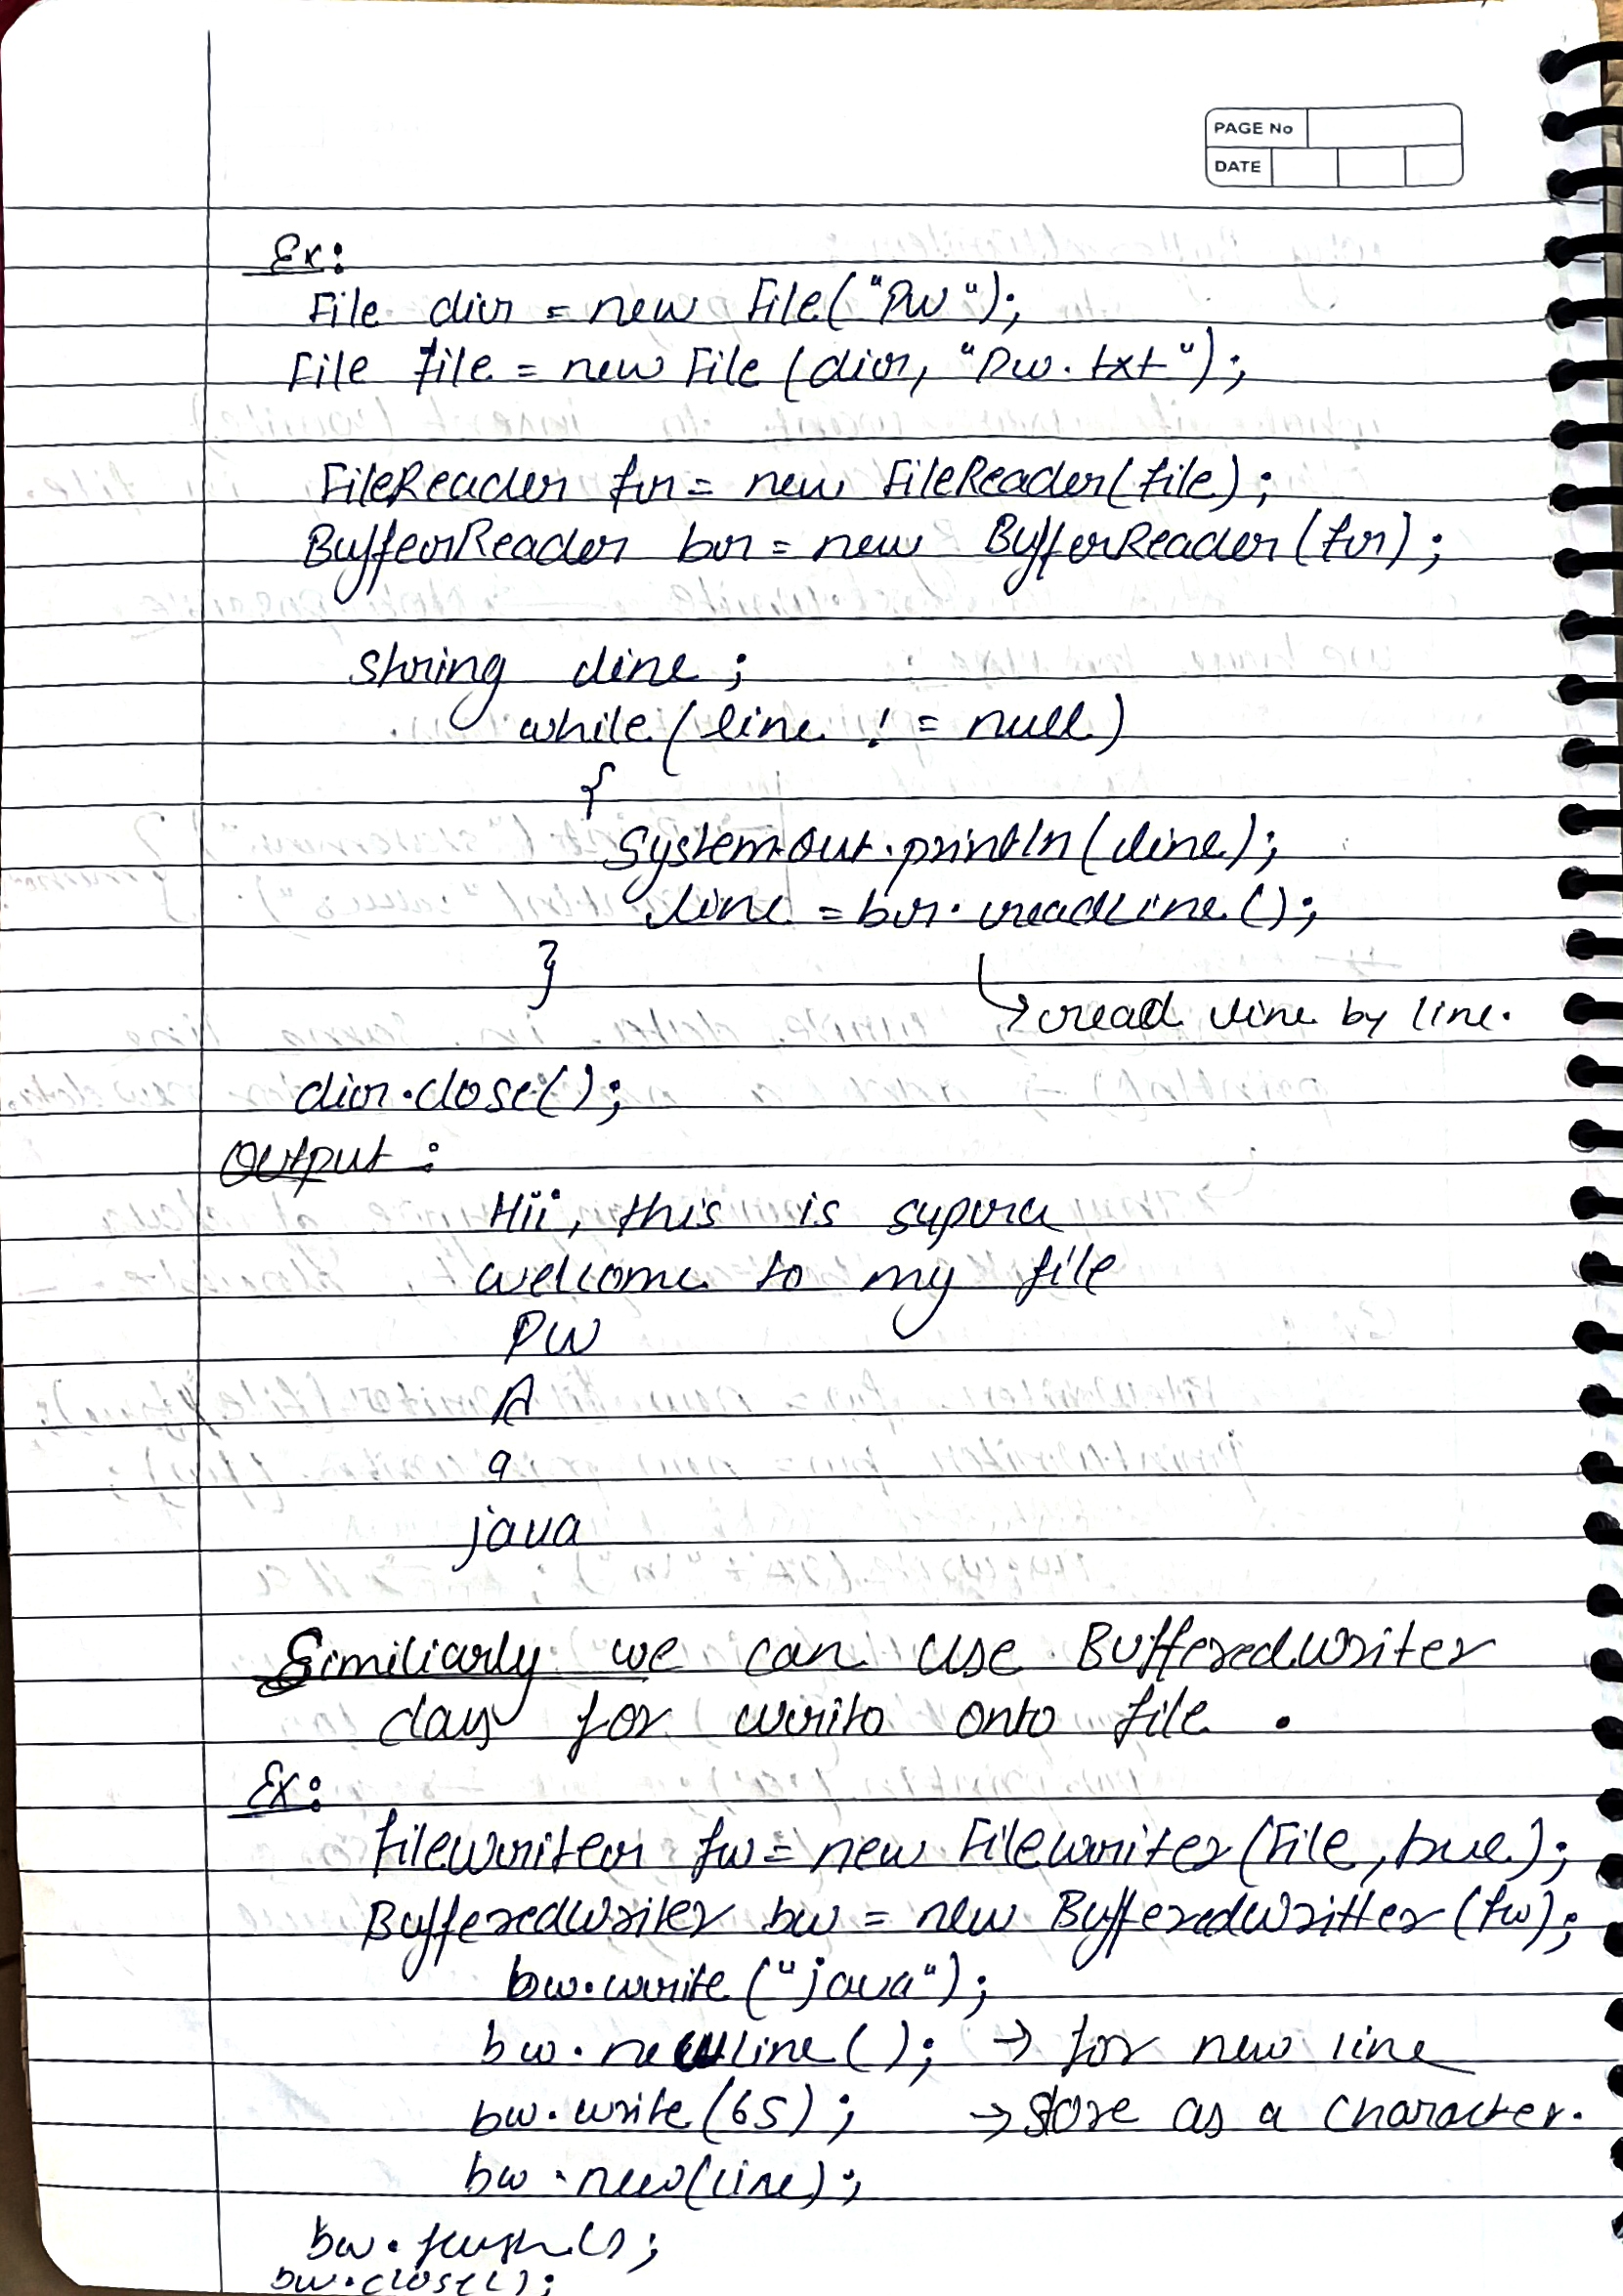 PAGE No
DATE
Ex:
File dir = new File("PW");
File file = new File (dir, "Pw.txt");
FileReader fr = new FileReader(file);
BufferReader br = new BufferReader(fr);
string line;
while(line != null)
{
System.out.println(line);
line = br.readLine();
}
→ read line by line.
dir.close();
Output:
Hii, this is supria
welcome to my file
PW
A
a
java
Similiarly we can use BufferedWriter
class for write onto file.
Ex:
fileWriter fw = new Filewriter(File, true);
BufferedWriter bw = new BufferedWritter(fw);
bw.write("java");
bw.newline(); → for new line
bw.write(65); → store as a character.
bw.new(line);
bw.flush();
bw.close();